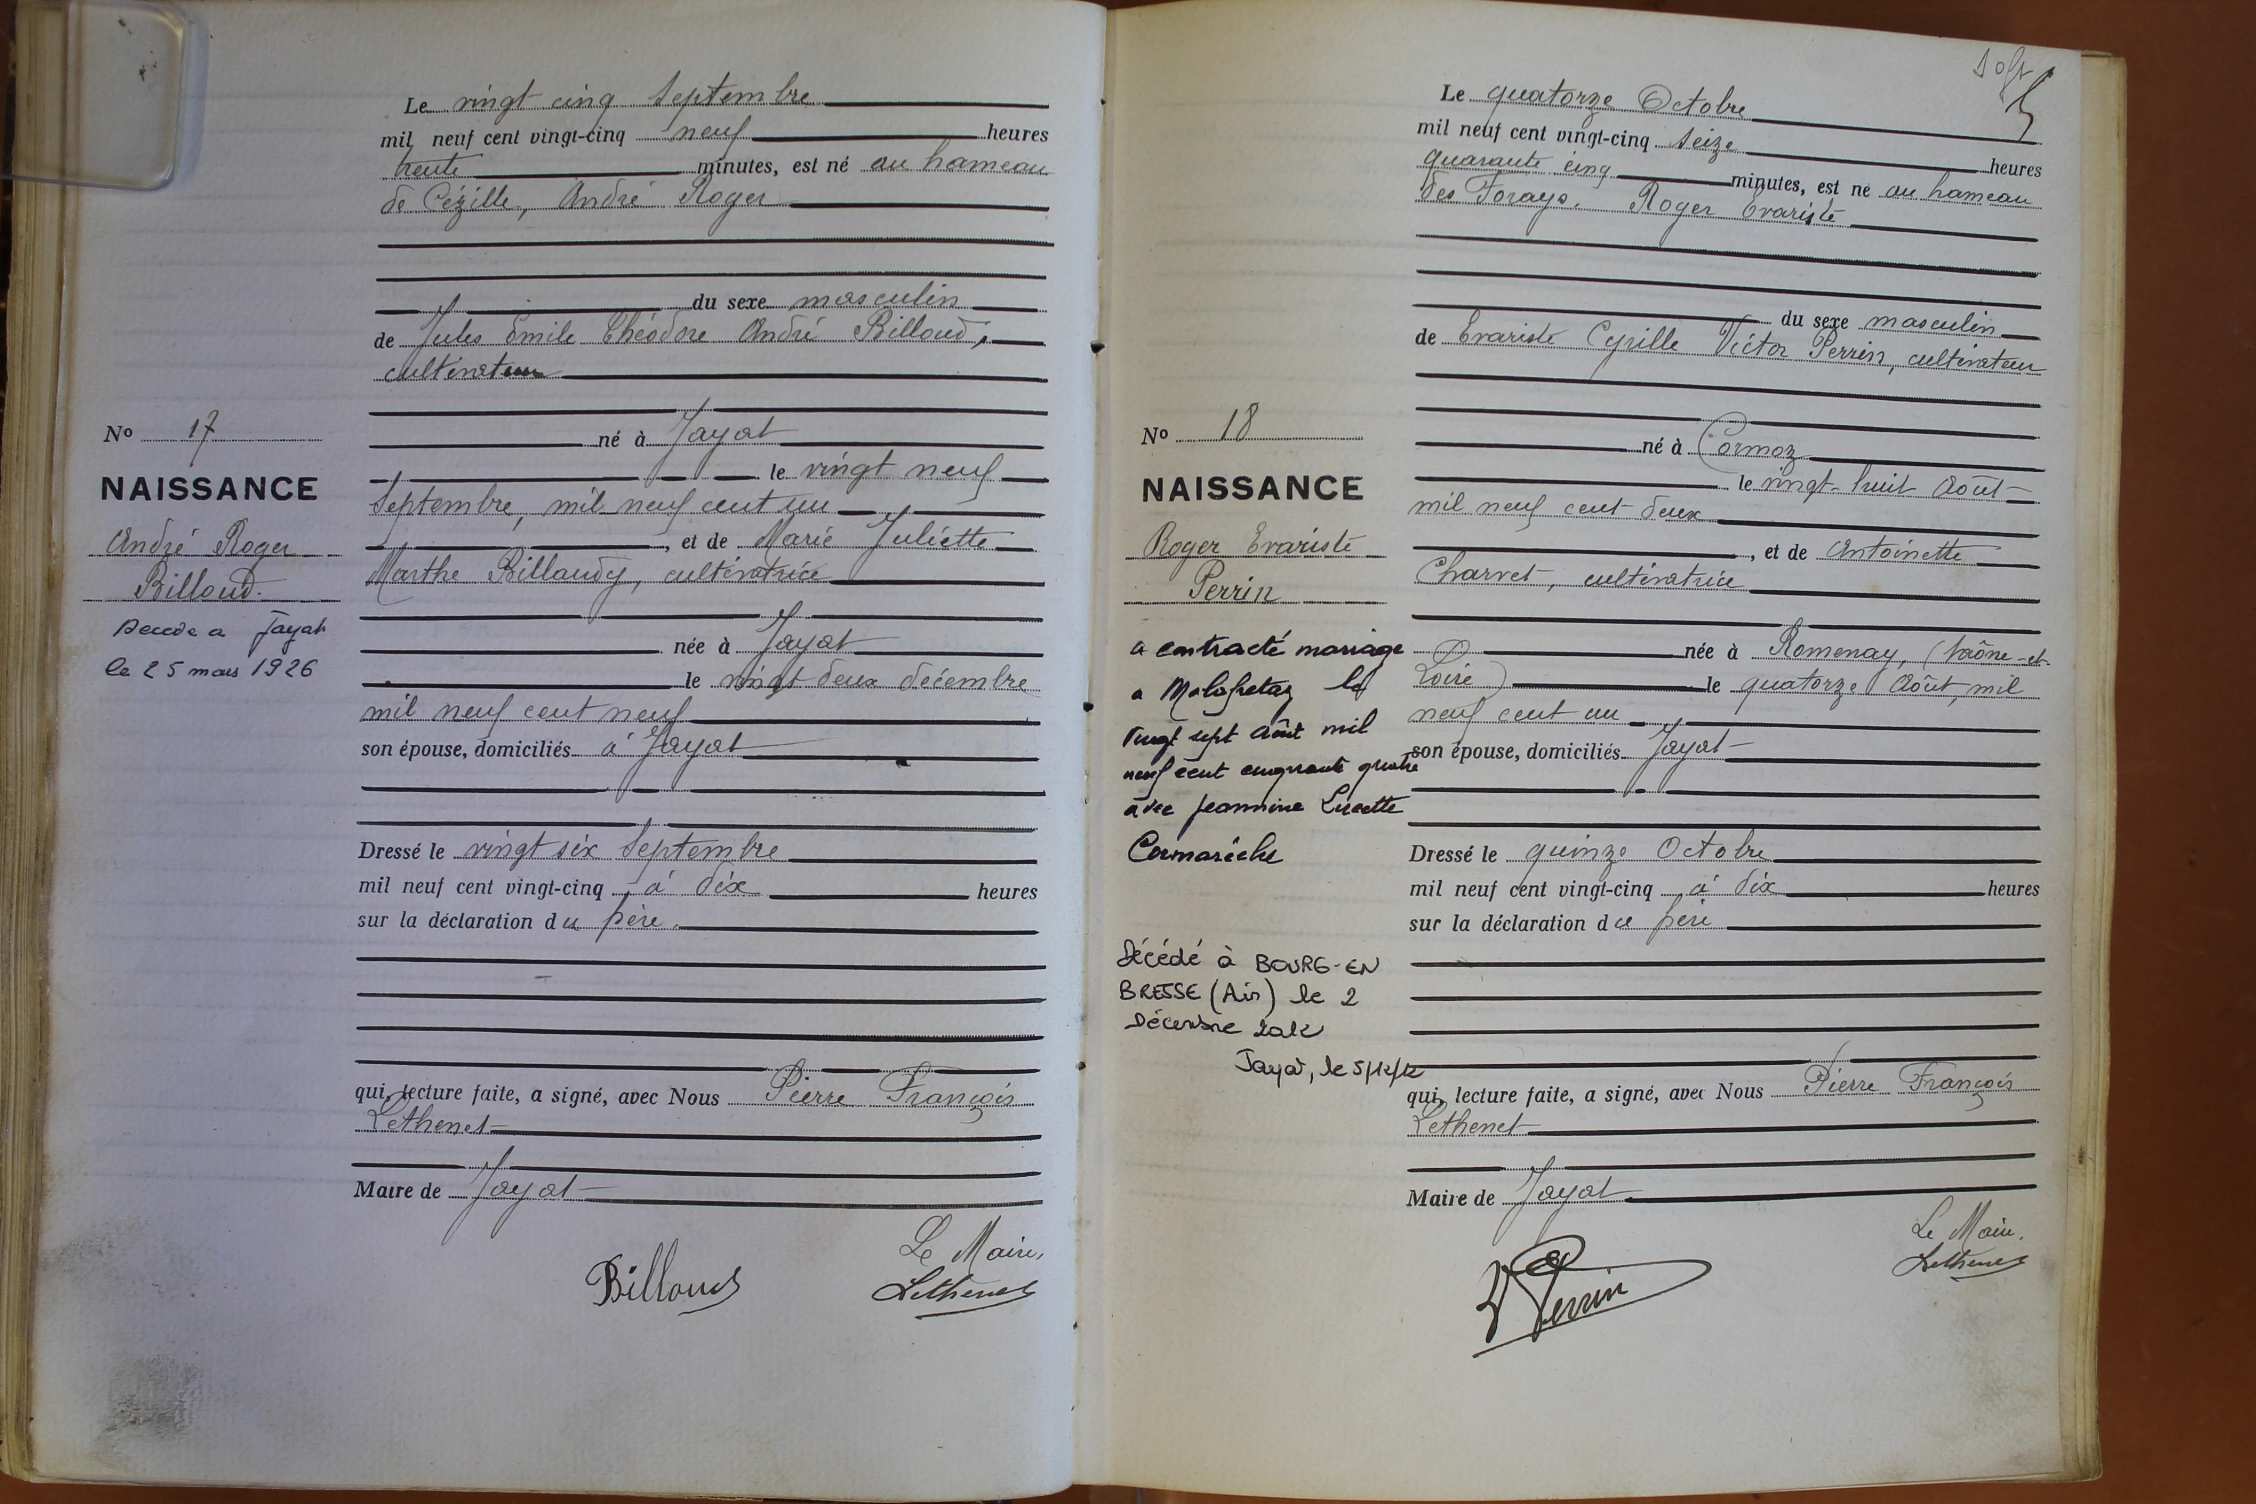 Le vingt cinq Septembre
mil neuf cent vingt-cinq neuf heures
trente minutes, est né au hameau
de Cézille, André Roger
du sexe masculin
de Jules Emile Théodore André Billoud,
cultivateur
né à Jayat
le vingt neuf
Septembre, mil neuf cent un
, et de Marie Juliette
Marthe Billaudy, cultivatrice
née à Jayat
le vingt deux décembre
mil neuf cent neuf
son épouse, domiciliés à Jayat
Dressé le vingt six Septembre
mil neuf cent vingt-cinq à dix heures
sur la déclaration du père.
qui, lecture faite, a signé, avec Nous Pierre François
Lethenet
Maire de Jayat
Le Maire,
Billoud Lethenet
No 17
NAISSANCE
André Roger
Billoud.
Décédé a Jayat
le 25 mars 1926
Le quatorze Octobre
mil neuf cent vingt-cinq seize heures
quarante cinq minutes, est né au hameau
des Forays. Roger Evariste
du sexe masculin
de Evariste Cyrille Victor Perrin, cultivateur
né à Cormoz
le vingt-huit Août
mil neuf cent deux
, et de Antoinette
Charvet, cultivatrice
née à Romenay, (Saône-et-
Loire) le quatorze Août, mil
neuf cent un
son épouse, domiciliés Jayat
Dressé le quinze Octobre
mil neuf cent vingt-cinq à dix heures
sur la déclaration du père
qui, lecture faite, a signé, avec Nous Pierre François
Lethenet
Maire de Jayat
Le Maire.
Perrin Lethenet
No 18
NAISSANCE
Roger Evariste
Perrin
a contracté mariage
a Malafretaz le
vingt sept Août mil
neuf cent cinquante quatre
avec Jeannine Lucette
Cormarèche
Décédé à BOURG-EN
BRESSE (Ain) le 2
Décembre 2012
Jayat, le 5/12/12